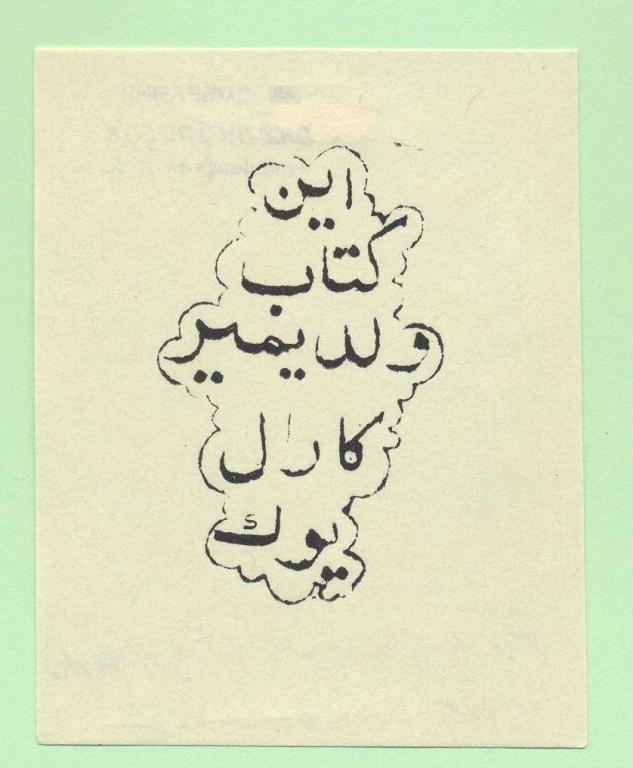 این
کتاب
ولدیمیر
کارل
یوك